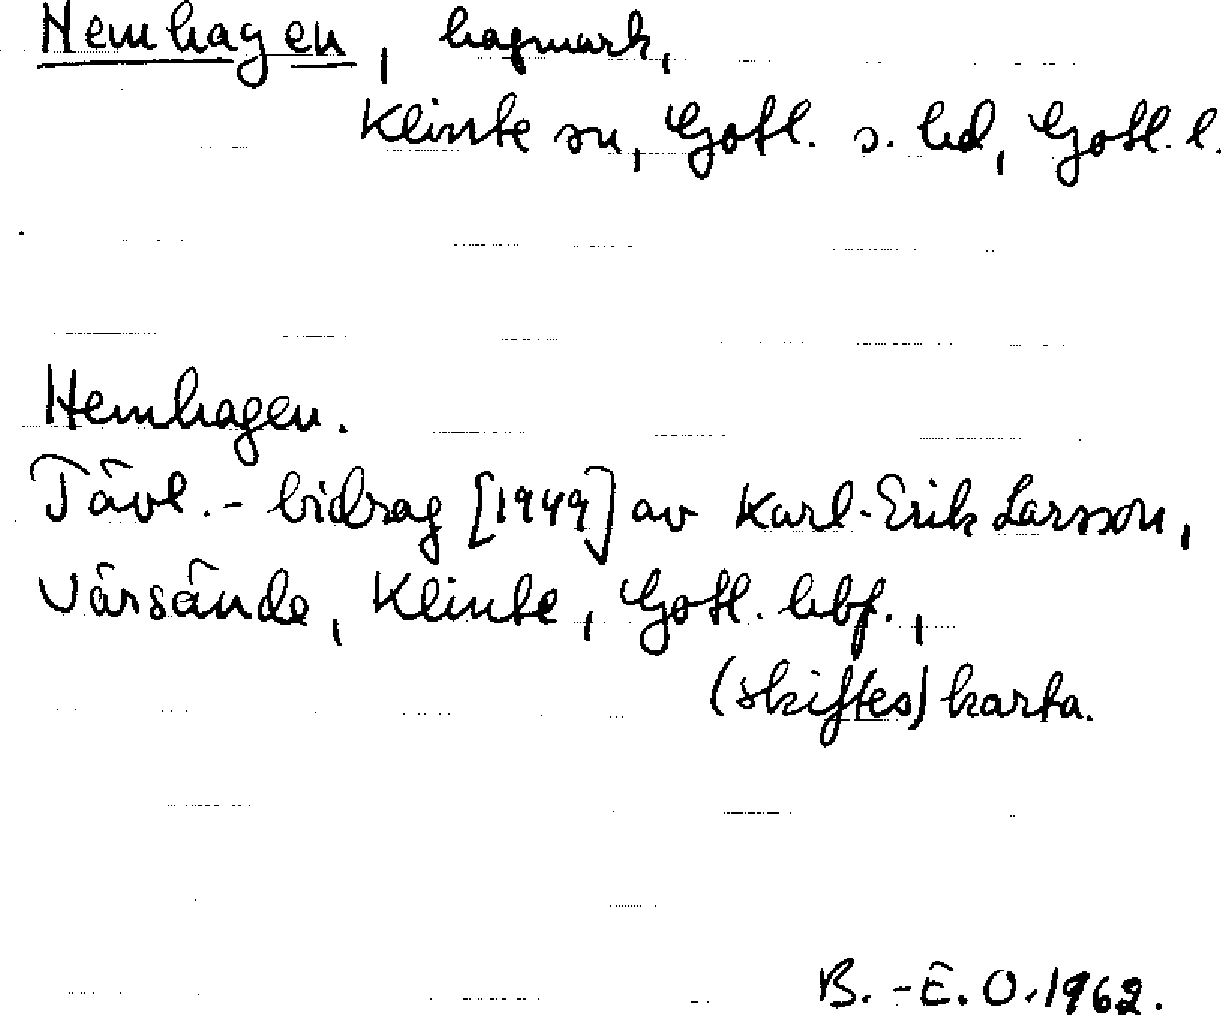 Hemhagen, hagmark,
Klinte sn, Gotl. s. hd, Gotl. l.
Hemhagen.
Tävl.-bidrag [1949] av Karl-Erik Larsson,
Värsände, Klinte, Gotl. hbf.,
(skiftes) karta.
B.-E. O. 1962.